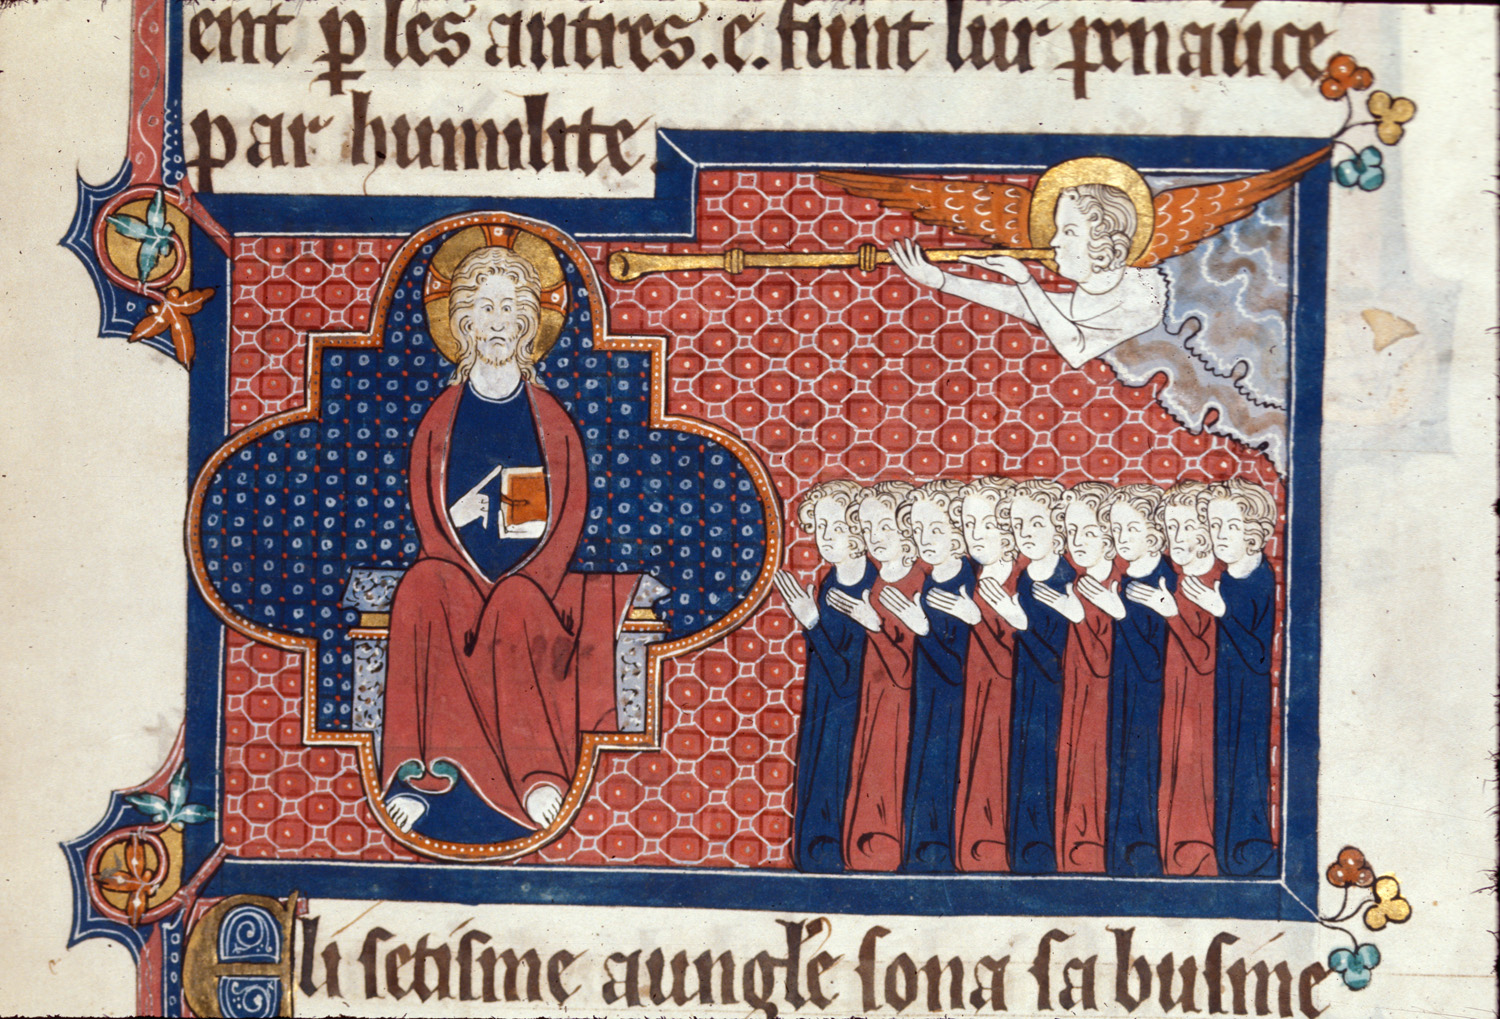 ent ꝑ les autres .e. funt lur penaūce
par humilite.
E li setisme aungl'e sona sa busine